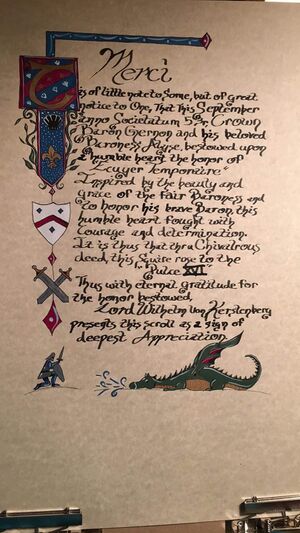 Merci
It is of little note to Some, but of great
notice to One, That this September
anno Societatum 5 Crown
Baron Gernon and his beloved
Baroness Kaise, bestowed upon
humble heart the honor of
Inspired by the beauty and
grace of the fair Baroness and
to honor his brave Baron, this
humble heart fought with
courage and determination.
It is thus that thru Chivalrous
deed, this Squire rose to the
XVI
Thus with eternal gratitude for
the honor bestowed,
Lord Wilhelm Von Kerstenberg
presents this scroll as a sign of
deepest Appreciation